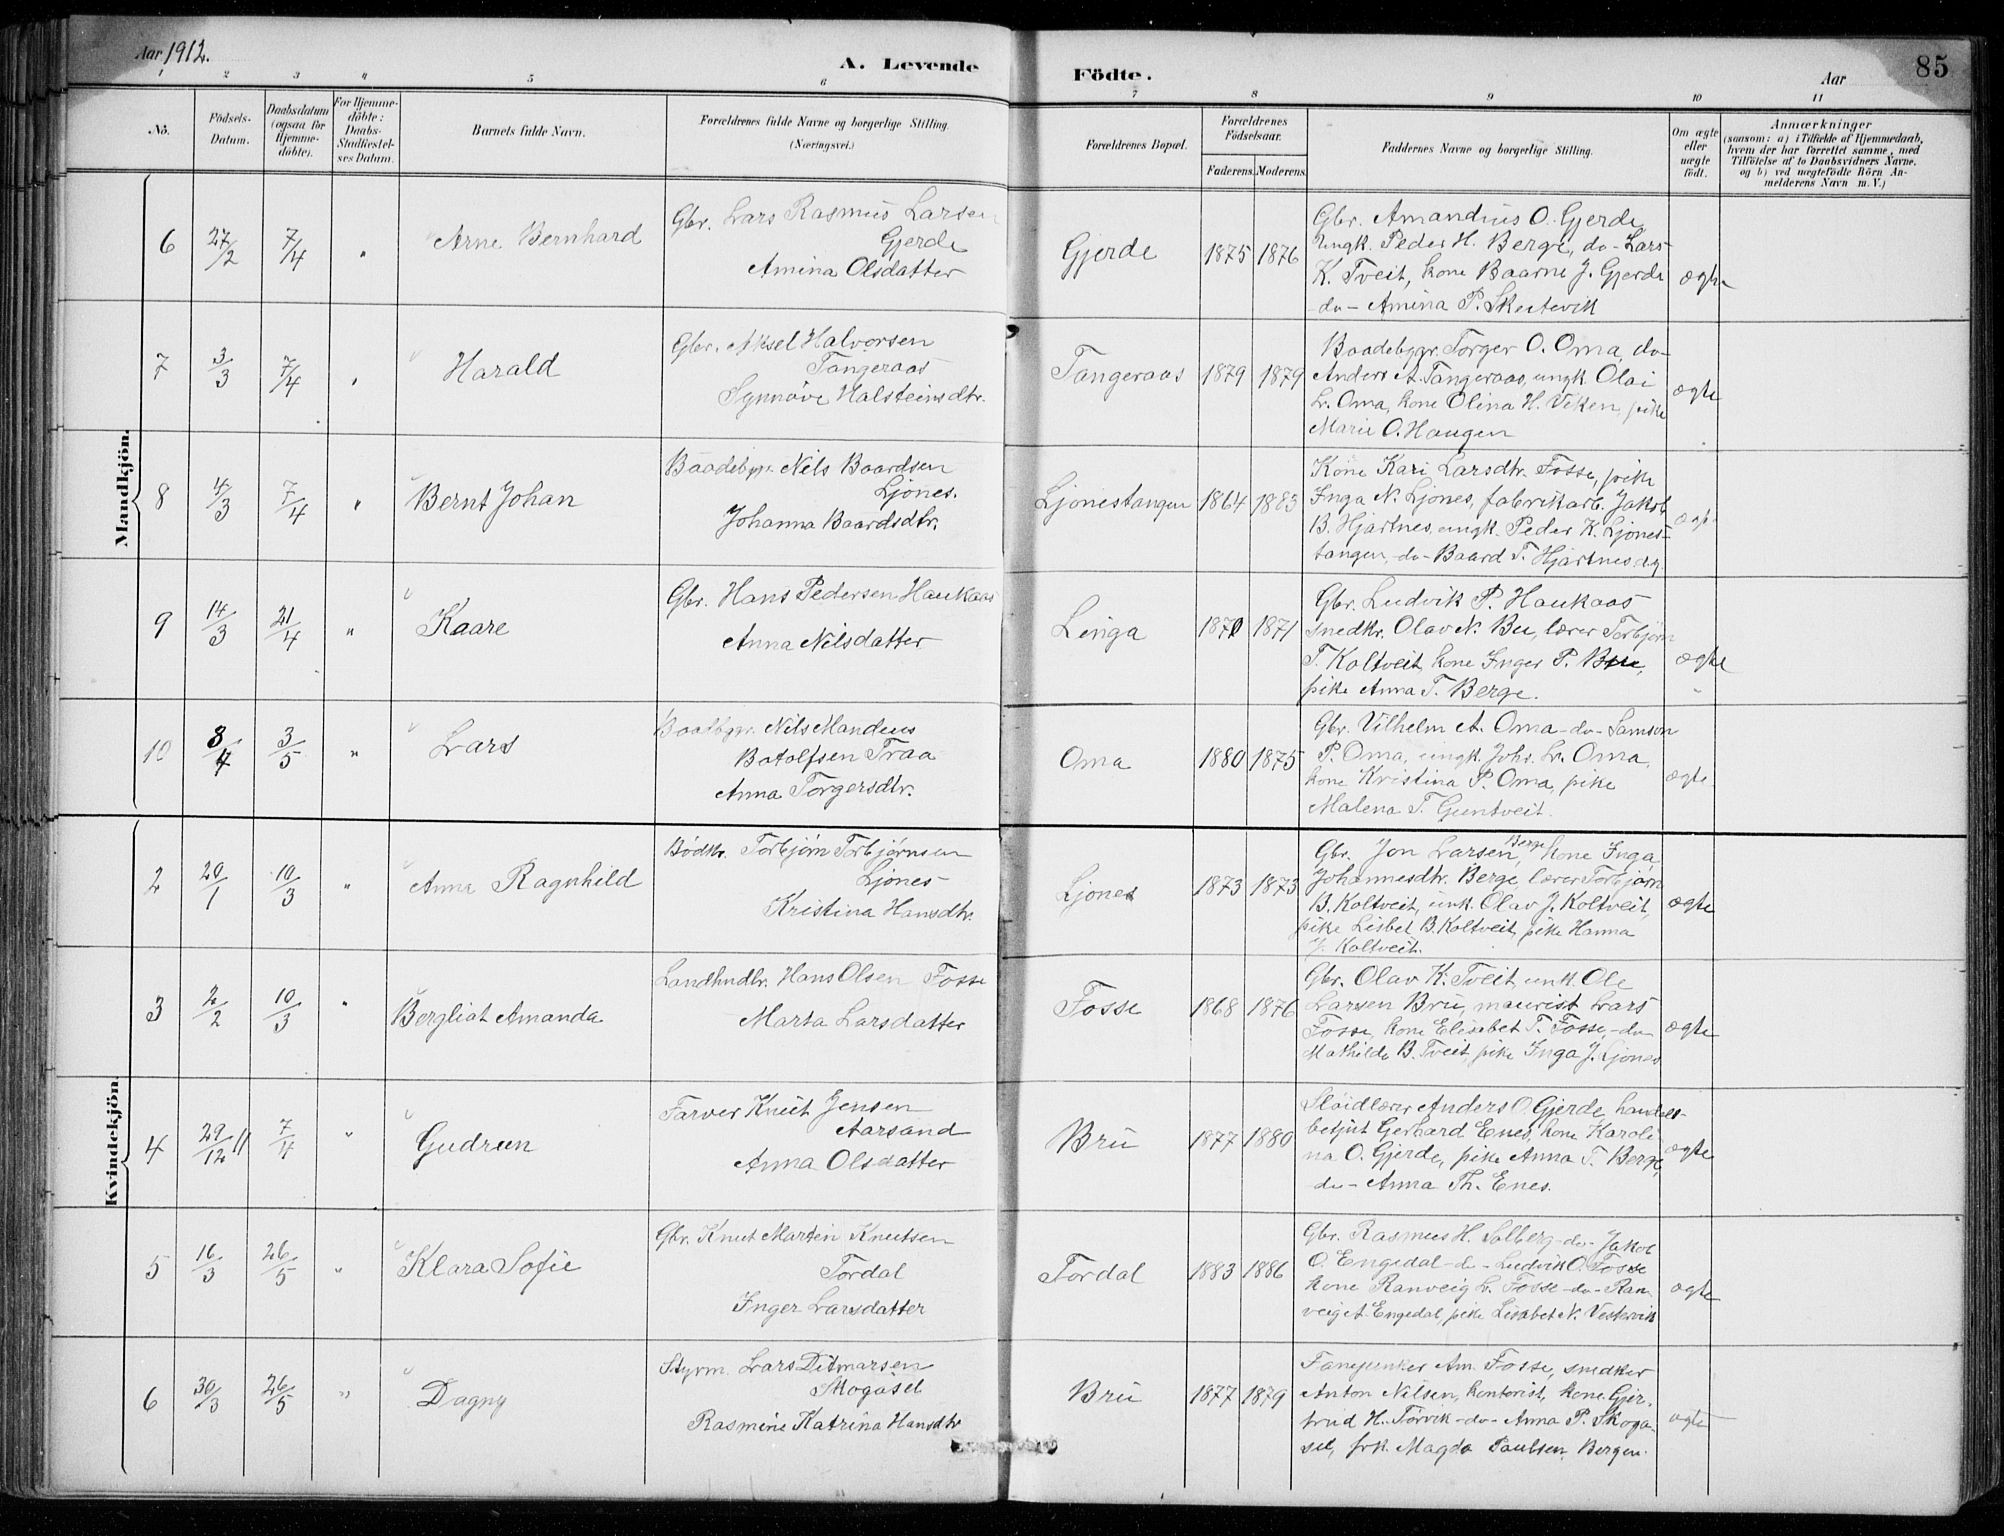 Aar 1912.
A. Levende Födte.
Aar
85
1 2 3 4 5 6 7 8 9 10 11
No.
Födsels-Datum.
Daabsdatum (ogsaa for Hjemme-döbte).
For Hjemme-döbte: Daabs-Stadfæstel-ses Datum.
Barnets fulde Navn.
Forældrenes fulde Navne og borgerlige Stilling.
(Næringsvei.)
Forældrenes Bopæl.
Forældrenes Födselsaar.
Faderens. Moderens.
Faddernes Navne og borgerlige Stilling.
Om ægte eller uægte födt.
Anmærkninger
(saasom: a) i Tilfælde af Hjemmedaab,
hvem der har forrettet samme, med
Tilföielse af to Daabsvidners Navne.
og b) ved uægtefödte Börn An-
melderens Navn m. V.)
Mandkjön.
6 27/2 7/4 " Arne Bernhard
Gbr. Lars Rasmus Larsen
Gjerde
Amina Olsdatter
Gjerde 1875 1876
Gbr. Amandius O. Gjerde
ungk. Peder H. Berge, do- Lars
K. Tveit, kone Baarne J. Gjerde
do- Amina P. Skeitevik
ægte
7 3/3 7/4 " Harald
Gbr. Aksel Halvorsen
Tangeraas
Synnöve Halsteinsdtr.
Tangeraas 1879 1879
Baadebygr. Torger O. Oma, do-
Anders A. Tangeraas, ungk. Olai
L. Oma, kone Olina H. Viken, pike
Marie O. Haugen
ægte
8 4/3 7/4 " Bernt Johan
Baadebygr. Nils Baardsen
Ljones.
Johanna Baardsdtr.
Ljonestangen 1864 1883
Kone Kari Larsdtr. Fosse, pike
Inga N. Ljones, fabrikarb. Jakob
B. Hjartnes, ungk. Peder K. Ljones-
tangen, do- Baard T. Hjartnes
9 14/3 21/4 " Kaare
Gbr. Hans Pedersen Haukaas
Anna Nilsdatter
Linga 1870 1871
Gbr. Ludvik P. Haukaas
snedkr. Olav N. Bu, lærer Torbjørn
T. Koltveit, kone Inger P. Bu,
pike Anna T. Berge.
ægte
10 8/4 3/5 " Lars
Baatbygr. Nils Mandius
Botolfsen Traa
Anna Torgersdtr.
Oma 1880 1875
Gbr. Vilhelm A. Oma - do- Samson
P. Oma, ungk. Johs. L. Oma,
kone Kristina P. Oma, pike
Malena T. Guntveit.
ægte
Kvindekjön.
2 20/1 10/3 " Anna Ragnhild
Bødkr. Torbjørn Torbjørnsen
Ljones
Kristina Hansdtr.
Ljones 1873 1873
Gbr. Jon Larsen Berge, kone Inga
Johannesdtr. Berge, lærer Torbjørn
B. Koltveit, unk. Olav J. Koltveit,
pike Lisbet B. Koltveit, pike Hanna
J. Koltveit.
ægte
3 2/2 10/3 " Bergliot Amanda
Landhndlr. Hans Olsen Fosse
Marta Larsdatter
Fosse 1868 1876
Gbr. Olav K. Tveit, unk. Ole
Larsen Bru, maurist Lars
Fosse, kone Elisabet T. Fosse, -do-
Mathilde B. Tveit, pike Inga J. Ljones
ægte
4 29/12 11 7/4 " Gudrun
Farver Knut Jensen
Aarsand
Anna Olsdatter
Bru 1877 1880
Sløidlærer Anders O. Gjerde, handels-
betjnt Gerhard Enes, kone Karoli-
na O. Gjerde, pike Anna T. Berge,
do- Anna Th. Enes.
ægte
5 16/3 26/5 " Klara Sofie
Gbr. Knut Martin Knutsen
Tordal
Inger Larsdatter
Tordal 1883 1886
Gbr. Rasmus H. Solberg -do- Jakob
O. Engedal -do- Ludvik O. Fosse
kone Ranveig L. Fosse -do- Ran-
veig A. Engedal, pike Lisabet N. Vestervik
ægte
6 30/3 26/5 " Dagny
Styrm. Lars Ditmarsen
Skogasel
Rasmine Katrina Hansdtr
Bru 1877 1879
Fanejunker Am. Fosse, snedker
Anton Nilsen, kontorist, kone Gjer-
trud H. Torvik -do- Anna P. Skoga-
sel, frk. Magda Paulsen, Bergen.
ægte